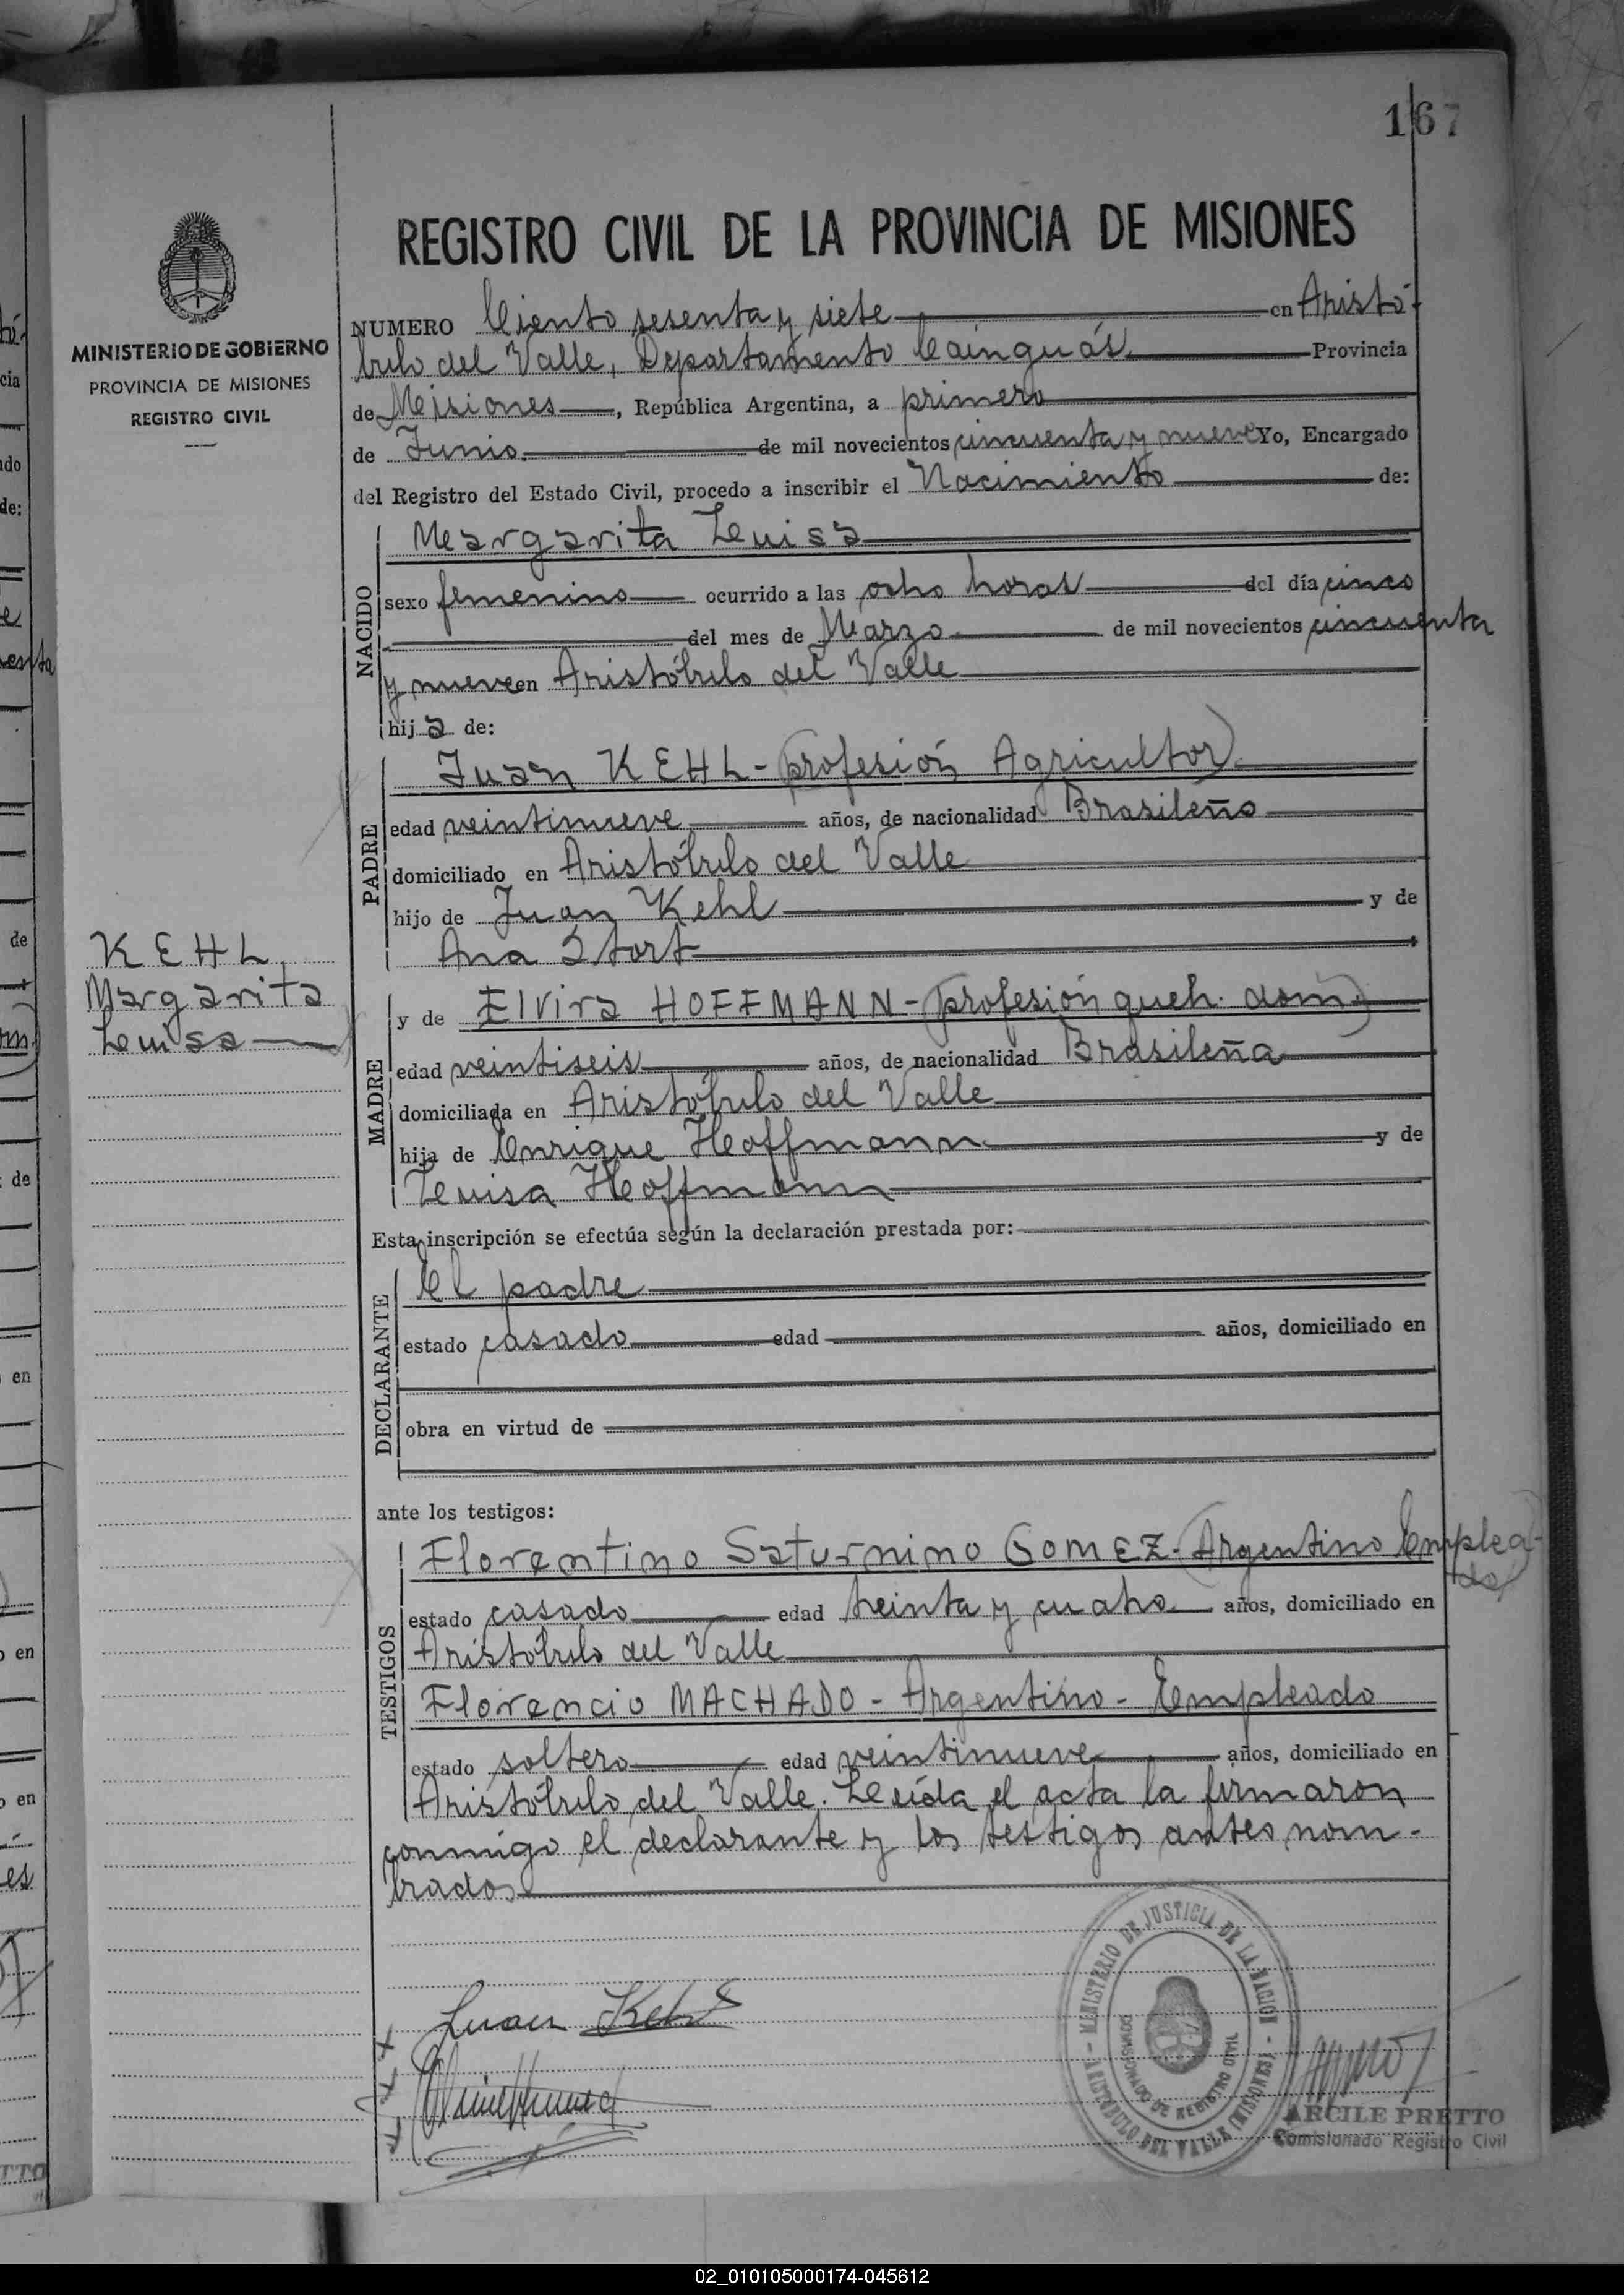 167
MINISTERIO DE GOBIERNO
PROVINCIA DE MISIONES
REGISTRO CIVIL
REGISTRO CIVIL DE LA PROVINCIA DE MISIONES
NUMERO Ciento sesenta y siete en Aristó-
bulo del Valle, Departamento Cainguás. Provincia
de Misiones, República Argentina, a primero
de Junio. de mil novecientos cincuenta y nueve Yo, Encargado
del Registro del Estado Civil, procedo a inscribir el Nacimiento de:
NACIDO
Margarita Luisa
sexo femenino ocurrido a las ocho horas del día cinco
del mes de Marzo de mil novecientos cincuenta
y nueve en Aristóbulo del Valle
hija de:
PADRE
Juan KEHL - (profesión Agricultor)
edad veintinueve años, de nacionalidad Brasileño
domiciliado en Aristóbulo del Valle
hijo de Juan Kehl y de
Ana Stort
KEHL,
Margarita
Luisa
MADRE
y de Elvira HOFFMANN - (profesión queh. dom.)
edad veintiseis años, de nacionalidad Brasileña
domiciliada en Aristóbulo del Valle
hija de Enrique Hoffmann y de
Luisa Hoffmann
Esta inscripción se efectúa según la declaración prestada por:
DECLARANTE
El padre
estado casado edad años, domiciliado en
obra en virtud de
ante los testigos:
TESTIGOS
Florentino Saturnino GOMEZ - (Argentino Emplea-
do)
estado casado edad treinta y cuatro años, domiciliado en
Aristóbulo del Valle
Florencio MACHADO - Argentino - Empleado
estado soltero edad veintinueve años, domiciliado en
Aristóbulo del Valle. Leída el acta la firmaron
conmigo el declarante y los testigos antes nom-
brados
Juan Kehl
MINISTERIO DE JUSTICIA DE LA NACION
COMISIONADO DE REGISTRO CIVIL
ARISTOBULO DEL VALLE (MISIONES)
ARCILE PRETTO
Comisionado Registro Civil
02_010105000174-045612